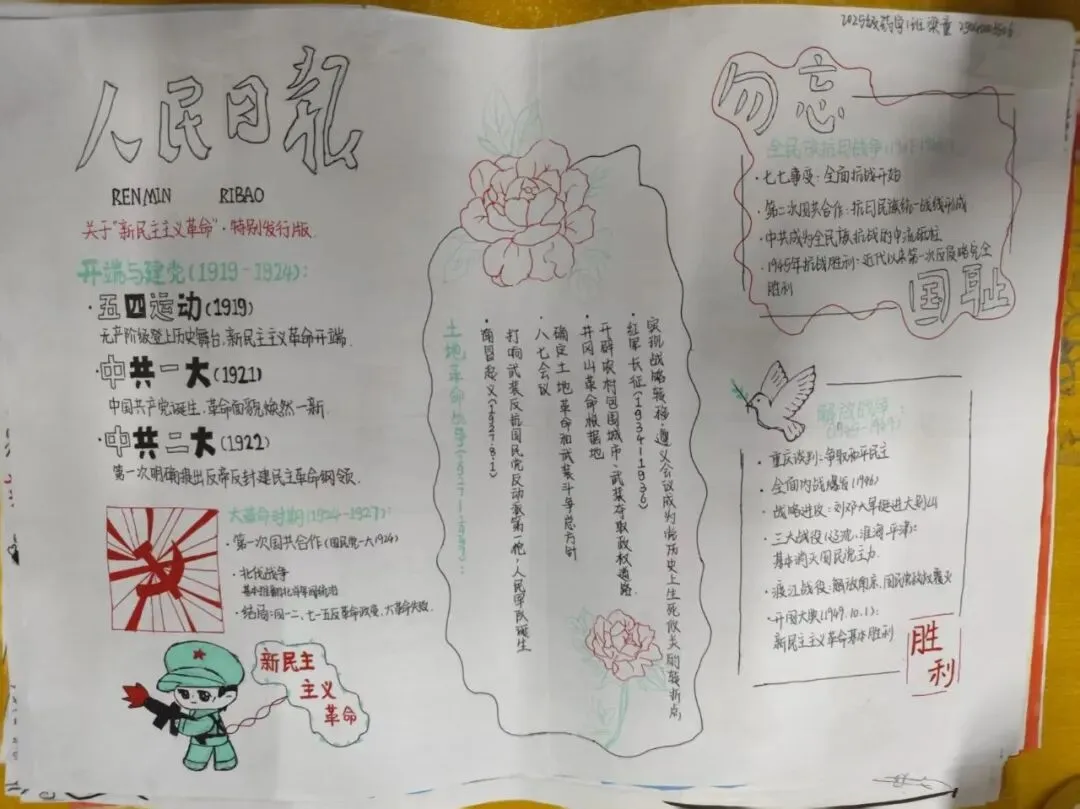 2025级药学1班
人民日报
RENMIN RIBAO
关于“新民主主义革命”·特别发行版
开端与建党(1919-1924):
·五四运动(1919)
无产阶级登上历史舞台,新民主主义革命开端.
·中共一大(1921)
中国共产党诞生,革命面貌焕然一新
·中共二大(1922)
第一次明确提出反帝反封建民主革命纲领.
大革命时期(1924-1927):
·第一次国共合作(国民党一大1924)
·北伐战争
·结局:四一二、七一五反革命政变,大革命失败.
新民主
主义
革命
实现战略转移·遵义会议成为党历史上生死攸关的转折点
·红军长征(1934-1936)
开辟农村包围城市、武装夺取政权道路.
·井冈山革命根据地
确定土地革命和武装斗争总方针
·八七会议
打响武装反抗国民党反动派第一枪,人民军队诞生
·南昌起义(1927.8.1)
土地革命战争
勿忘
全民族抗日战争
·七七事变:全面抗战开始
·第二次国共合作:抗日民族统一战线形成
·中共成为全民族抗战的中流砥柱
·1945年抗战胜利:近代以来第一次反侵略完全
胜利
国耻
解放战争:
·重庆谈判:争取和平民主
·全面内战爆发(1946)
·战略进攻:刘邓大军挺进大别山
·三大战役(辽沈,淮海,平津):
基本消灭国民党主力.
·渡江战役:解放南京,国民党政权覆灭
·开国大典(1949.10.1):
新民主主义革命基本胜利
胜
利